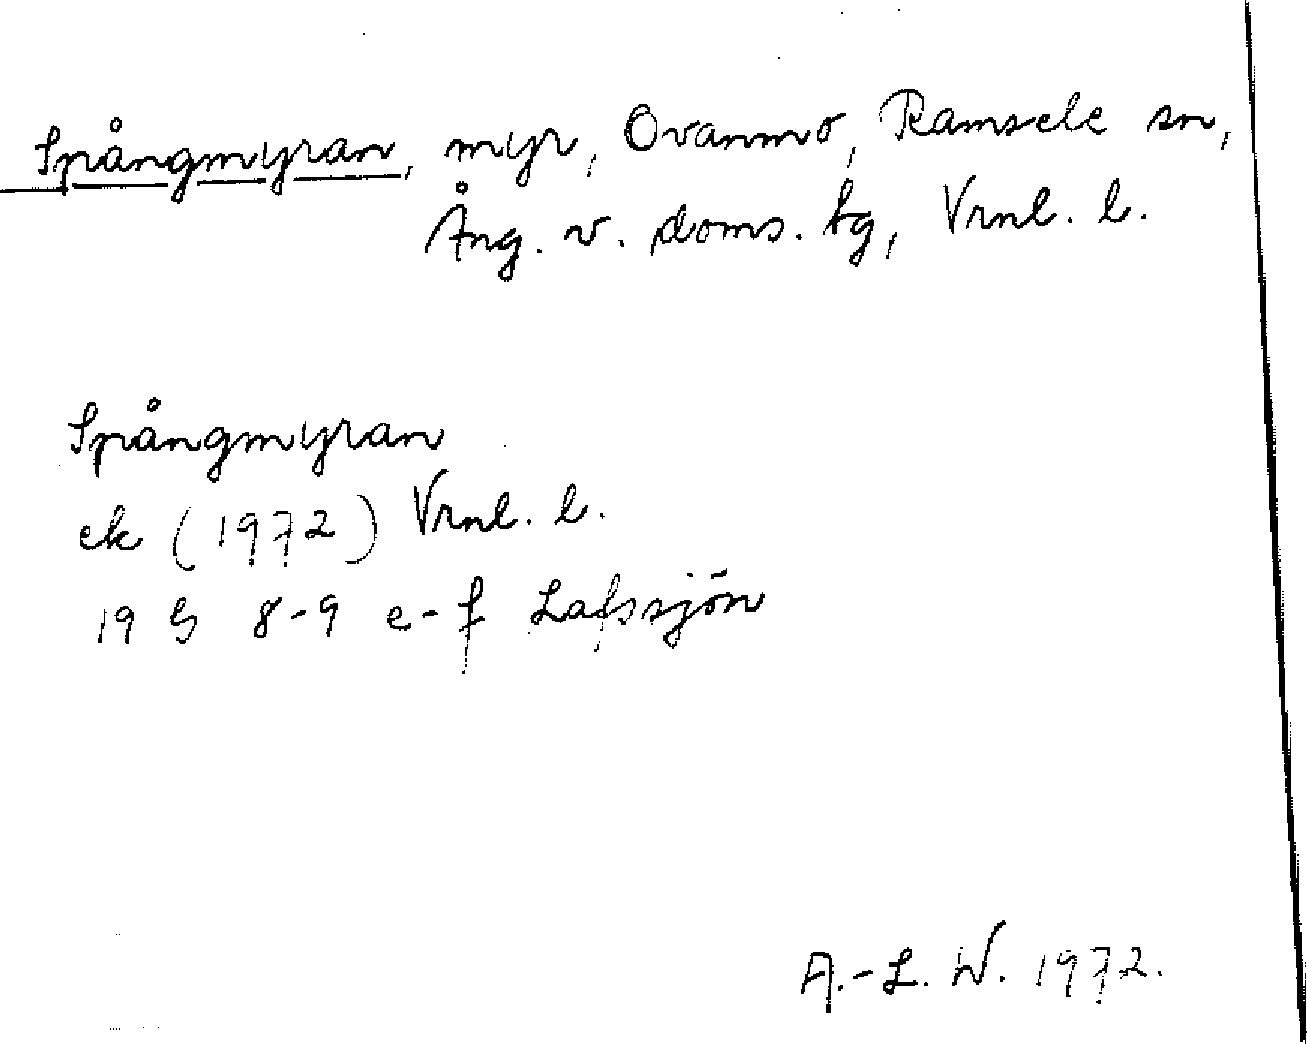 Spångmyran, myr, Ovanmo, Ramsele sn,
Ång. v. doms. tg, Vrnl. l.
Spångmyran
ek (1972) Vrnl. l.
19 G 8-9 e-f Lafssjön
A.-L. W. 1972.